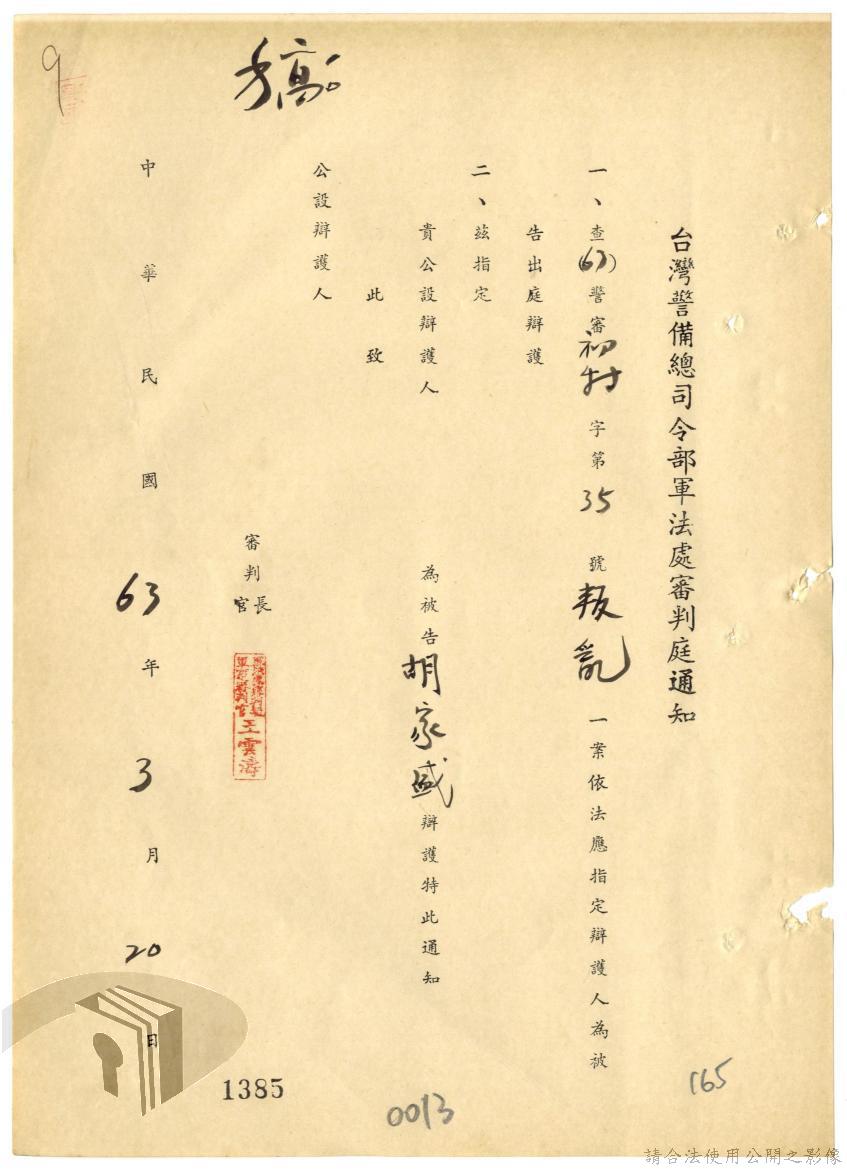 台灣警備總司令部軍法處審判庭通知
一、查(63)警審初特字第35號叛亂一案依法應指定辯護人為被
告出庭辯護
二、茲指定
貴公設辯護人為被告胡家盛辯護特此通知
此致
公設辯護人
審判長
官
王雲濤
中華民國63年3月20日
稿
9
1385
0013
165
請合法使用公開之影像